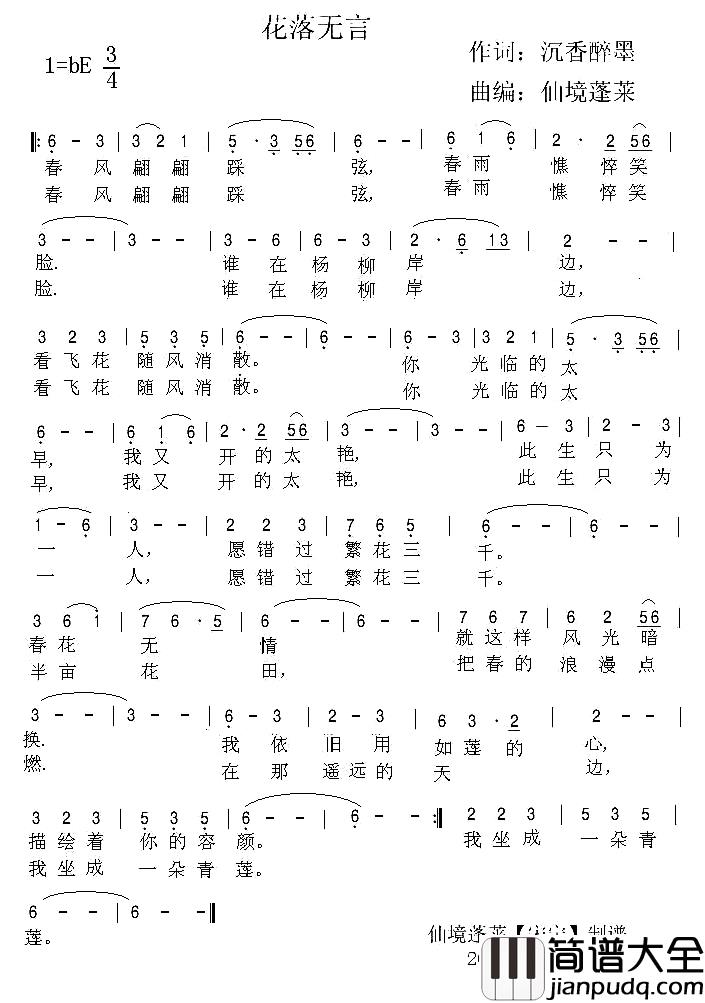 花落无言
作词：沉香醉墨
1=bE 3/4
曲编：仙境蓬莱
‖: 6 - 3 | 3 2 1 | 5 · 3 56 | 6 - - | 6 1 6 | 2 · 2 56 |
春 风 翩 翩 踩 弦, 春 雨 憔 悴 笑
春 风 翩 翩 踩 弦, 春 雨 憔 悴 笑
3 - - | 3 - - | 3 - 6 | 6 - 3 | 2 · 6 13 | 2 - - |
脸. 谁 在 杨 柳 岸 边,
脸. 谁 在 杨 柳 岸 边,
3 2 3 | 5 3 5 | 6 - - | 6 - - | 6 - 3 | 3 2 1 | 5 · 3 56 |
看 飞 花 随 风 消 散。 你 光 临 的 太
看 飞 花 随 风 消 散。 你 光 临 的 太
6 - - | 6 1 6 | 2 · 2 56 | 3 - - | 3 - - | 6 - 3 | 2 - 3 |
早, 我 又 开 的 太 艳, 此 生 只 为
早, 我 又 开 的 太 艳, 此 生 只 为
1 - 6 | 3 - - | 2 2 3 | 7 6 5 | 6 - - | 6 - - |
一 人, 愿 错 过 繁 花 三 千。
一 人, 愿 错 过 繁 花 三 千。
3 6 1 | 7 6 · 5 | 6 - - | 6 - - | 7 6 7 | 6 2 56 |
春 花 无 情 就 这 样 风 光 暗
半 亩 花 田, 把 春 的 浪 漫 点
3 - - | 3 - - | 6 - 3 | 2 - 3 | 6 3 · 2 | 2 - - |
换. 我 依 旧 用 如 莲 的 心,
燃. 在 那 遥 远 的 天 边,
3 2 3 | 5 3 5 | 6 - - | 6 - :‖ 2 2 3 | 5 3 5 |
描 绘 着 你 的 容 颜。 我 坐 成 一 朵 青
我 坐 成 一 朵 青 莲。
6 - - | 6 - - ‖
莲。
仙境蓬莱 制谱
简谱大全
jianpudq.com